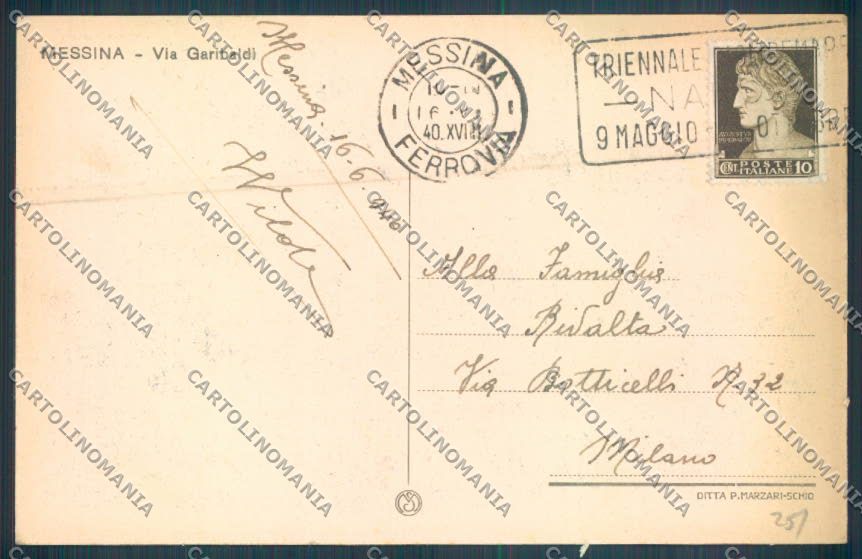 MESSINA - Via Garibaldi
Messina. 16-6. 940
Wilde
MESSINA
40.XVIII
FERROVIA
TRIENNALE
NA
9 MAGGIO
POSTE
ITALIANE
CENT. 10
Alla Famiglia
Rivalta
Via Botticelli N 32
Milano
DITTA P. MARZARI-SCHIO
251
CARTOLINOMANIA